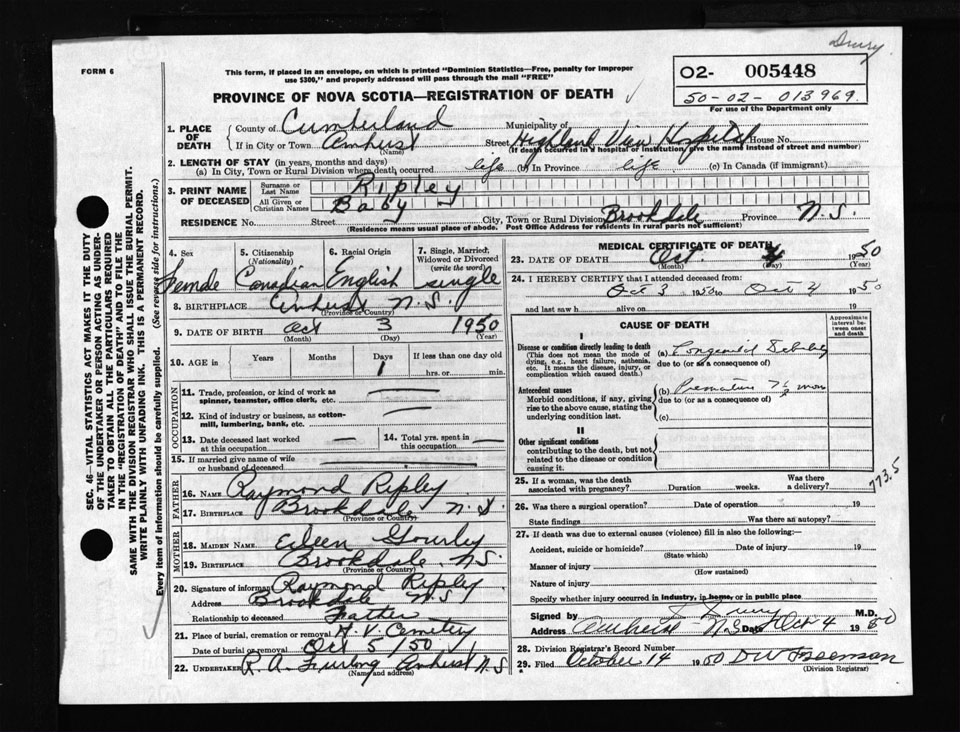 Drury
FORM 6
This form, if placed in an envelope, on which is printed "Dominion Statistics—Free, penalty for improper
use $300," and properly addressed will pass through the mail "FREE"
O2- 005448
50-02-013969.
For use of the Department only
PROVINCE OF NOVA SCOTIA—REGISTRATION OF DEATH
1. PLACE OF DEATH
County of Cumberland Municipality of
If in City or Town Amherst Street Highland View Hospital House No.
(Name) (If death occurred in a hospital or institution, give the name instead of street and number)
2. LENGTH OF STAY (in years, months and days)
(a) In City, Town or Rural Division where death occurred life (b) In Province life (c) In Canada (if immigrant)
3. PRINT NAME OF DECEASED
Surname or Last Name Ripley
All Given or Christian Names Baby
RESIDENCE No. Street City, Town or Rural Division Brookdale Province N.S.
(Residence means usual place of abode. Post Office Address for residents in rural parts not sufficient)
4. Sex 5. Citizenship (Nationality) 6. Racial Origin 7. Single, Married, Widowed or Divorced (write the word)
Female Canadian English single
8. BIRTHPLACE Amherst N.S.
(Province or Country)
9. DATE OF BIRTH Oct 3 1950
(Month) (Day) (Year)
10. AGE in Years Months Days If less than one day old
1 hrs. or min.
OCCUPATION
11. Trade, profession, or kind of work as
spinner, teamster, office clerk, etc. —
12. Kind of industry or business, as cotton-
mill, lumbering, bank, etc. —
13. Date deceased last worked
at this occupation —
14. Total yrs. spent in
this occupation —
15. If married give name of wife
or husband of deceased —
FATHER
16. NAME Raymond Ripley
17. BIRTHPLACE Brookdale N.S.
(Province or Country)
MOTHER
18. MAIDEN NAME Eileen Gourley
19. BIRTHPLACE Brookdale NS
(Province or Country)
20. Signature of informant Raymond Ripley
Address Brookdale N.S
Relationship to deceased Father
21. Place of burial, cremation or removal H.V. Cemetery
Date of burial or removal Oct 5/50
22. UNDERTAKER R.A. Furlong Amherst N.S
(Name and address)
MEDICAL CERTIFICATE OF DEATH
23. DATE OF DEATH Oct. 4 1950
(Month) (Day) (Year)
24. I HEREBY CERTIFY that I attended deceased from
Oct 3 1950 to Oct 4 1950
and last saw h alive on 19
CAUSE OF DEATH
Approximate interval between onset and death
I
Disease or condition directly leading to death
(This does not mean the mode of
dying, e.g., heart failure, asthenia,
etc. It means the disease, injury, or
complication which caused death.)
(a) Congenital Debility
due to (or as a consequence of)
Antecedent causes
Morbid conditions, if any, giving
rise to the above cause, stating the
underlying condition last.
(b) Premature 7½ mon
due to (or as a consequence of)
(c)
II
Other significant conditions
contributing to the death, but not
related to the disease or condition
causing it.
25. If a woman, was the death
associated with pregnancy? Duration weeks. Was there a delivery?
773.5
26. Was there a surgical operation? Date of operation 19
State findings Was there an autopsy?
27. If death was due to external causes (violence) fill in also the following:
Accident, suicide or homicide? Date of injury 19
(State which)
Manner of injury
(How sustained)
Nature of injury
Specify whether injury occurred in industry, in home, or in public place
Signed by Drury M.D.
Address Amherst N.S Date Oct 4 1950
28. Division Registrar's Record Number
29. Filed October 14 1950 DW Freeman
(Division Registrar)
SEC. 46—VITAL STATISTICS ACT MAKES IT THE DUTY
OF THE UNDERTAKER OR PERSON ACTING AS UNDER-
TAKER TO OBTAIN ALL THE PARTICULARS REQUIRED
IN THE "REGISTRATION OF DEATH" AND TO FILE THE
SAME WITH THE DIVISION REGISTRAR WHO SHALL ISSUE THE BURIAL PERMIT.
WRITE PLAINLY WITH UNFADING INK. THIS IS A PERMANENT RECORD.
Every item of information should be carefully supplied. (See reverse side for instructions.)